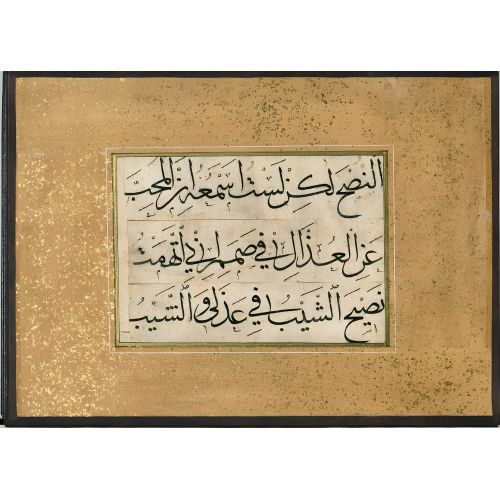 النصح لكن لست اسمعه ان المحب
عن العذال في صمم اني اتهمت
نصيح الشيب في عذلي والشيب